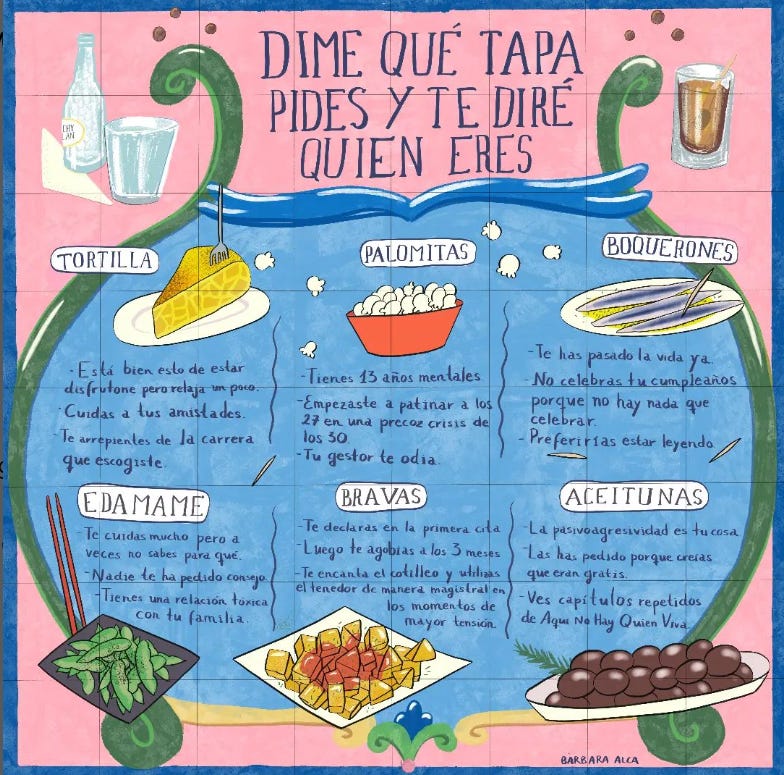 DIME QUÉ TAPA
PIDES Y TE DIRÉ
QUIEN ERES
TORTILLA
- Está bien esto de estar
disfrutone pero relaja un poco.
- Cuidas a tus amistades.
- Te arrepientes de la carrera
que escogiste.
PALOMITAS
- Tienes 13 años mentales
- Empezaste a patinar a los
27 en una precoz crisis de
los 30.
- Tu gestor te odia.
BOQUERONES
- Te has pasado la vida ya.
- No celebras tu cumpleaños
porque no hay nada que
celebrar.
- Preferirías estar leyendo.
EDAMAME
- Te cuidas mucho pero a
veces no sabes para qué.
- Nadie te ha pedido consejo.
- Tienes una relación tóxica
con tu familia.
BRAVAS
- Te declaras en la primera cita
- Luego te agobias a los 3 meses
- Te encanta el cotilleo y utilizas
el tenedor de manera magistral en
los momentos de
mayor tensión.
ACEITUNAS
- La pasivoagresividad es tu cosa.
- Las has pedido porque creías
que eran gratis.
- Ves capítulos repetidos
de Aquí No Hay Quien Viva.
BÁRBARA ALCA